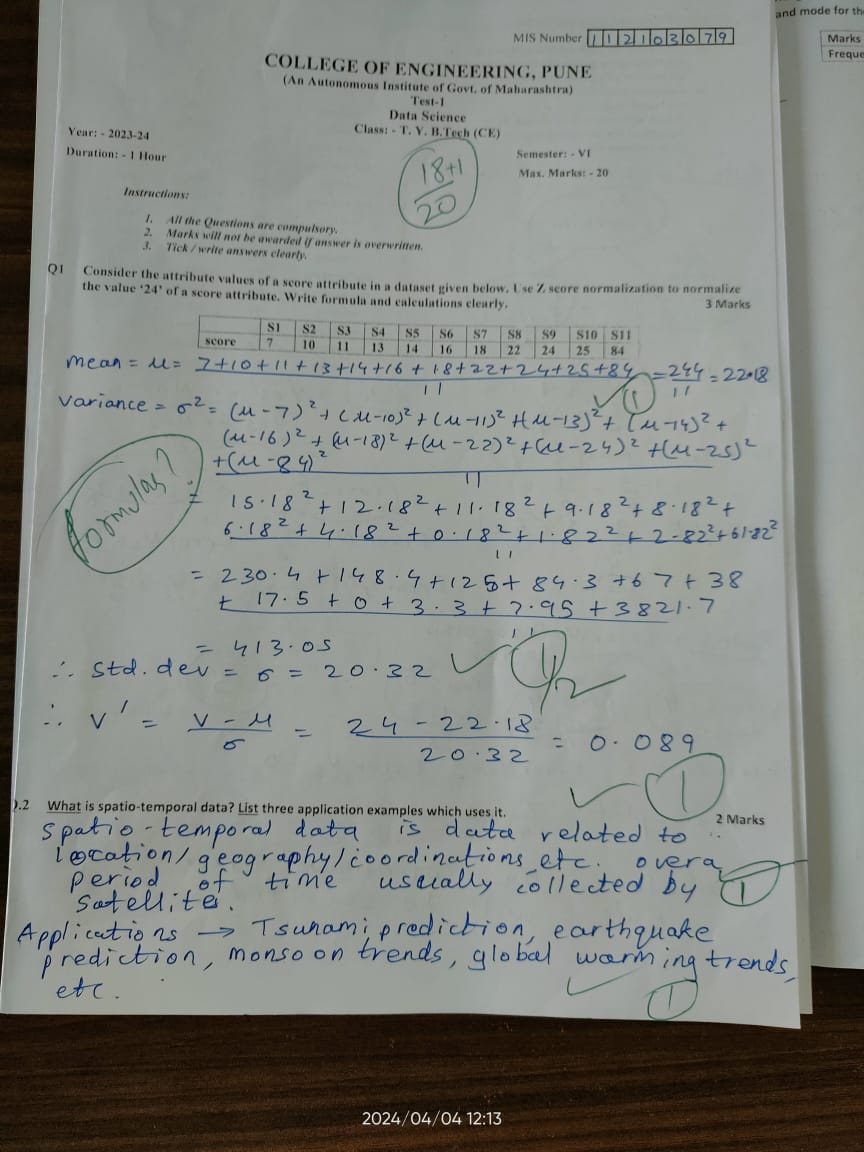 and mode for th
Marks
Freque
MIS Number 112103079
COLLEGE OF ENGINEERING, PUNE
(An Autonomous Institute of Govt. of Maharashtra)
Test-1
Data Science
Year: - 2023-24
Class: - T. Y. B.Tech (CE)
Duration: - 1 Hour
Semester: - VI
Max. Marks: - 20
18+1
20
Instructions:
1. All the Questions are compulsory.
2. Marks will not be awarded if answer is overwritten.
3. Tick / write answers clearly.
Q1 Consider the attribute values of a score attribute in a dataset given below. Use Z score normalization to normalize
the value '24' of a score attribute. Write formula and calculations clearly. 3 Marks
S1 S2 S3 S4 S5 S6 S7 S8 S9 S10 S11
score 7 10 11 13 14 16 18 22 24 25 84
mean = μ = 7+10+11+13+14+16+18+22+24+25+84 = 244 = 22.18
11 11
1
variance = σ² = (μ-7)² + (μ-10)² + (μ-11)² + (μ-13)² + (μ-14)² +
(μ-16)² + (μ-18)² + (μ-22)² + (μ-24)² + (μ-25)²
+ (μ-84)²
11
formulas?
= 15.18² + 12.18² + 11.18² + 9.18² + 8.18² +
6.18² + 4.18² + 0.18² + 1.82² + 2.82² + 61.82²
11
= 230.4 + 148.4 + 125 + 84.3 + 67 + 38
+ 17.5 + 0 + 3.3 + 7.95 + 3821.7
11
= 413.05
∴ std. dev = σ = 20.32
1/2
∴ v' = v - μ = 24 - 22.18 = 0.089
σ 20.32
1
).2 What is spatio-temporal data? List three application examples which uses it. 2 Marks
Spatio-temporal data is data related to
location/geography/coordinations etc. over a
period of time usually collected by
satellites.
1
Applications → Tsunami prediction, earthquake
prediction, monsoon trends, global warming trends,
etc.
1
2024/04/04 12:13